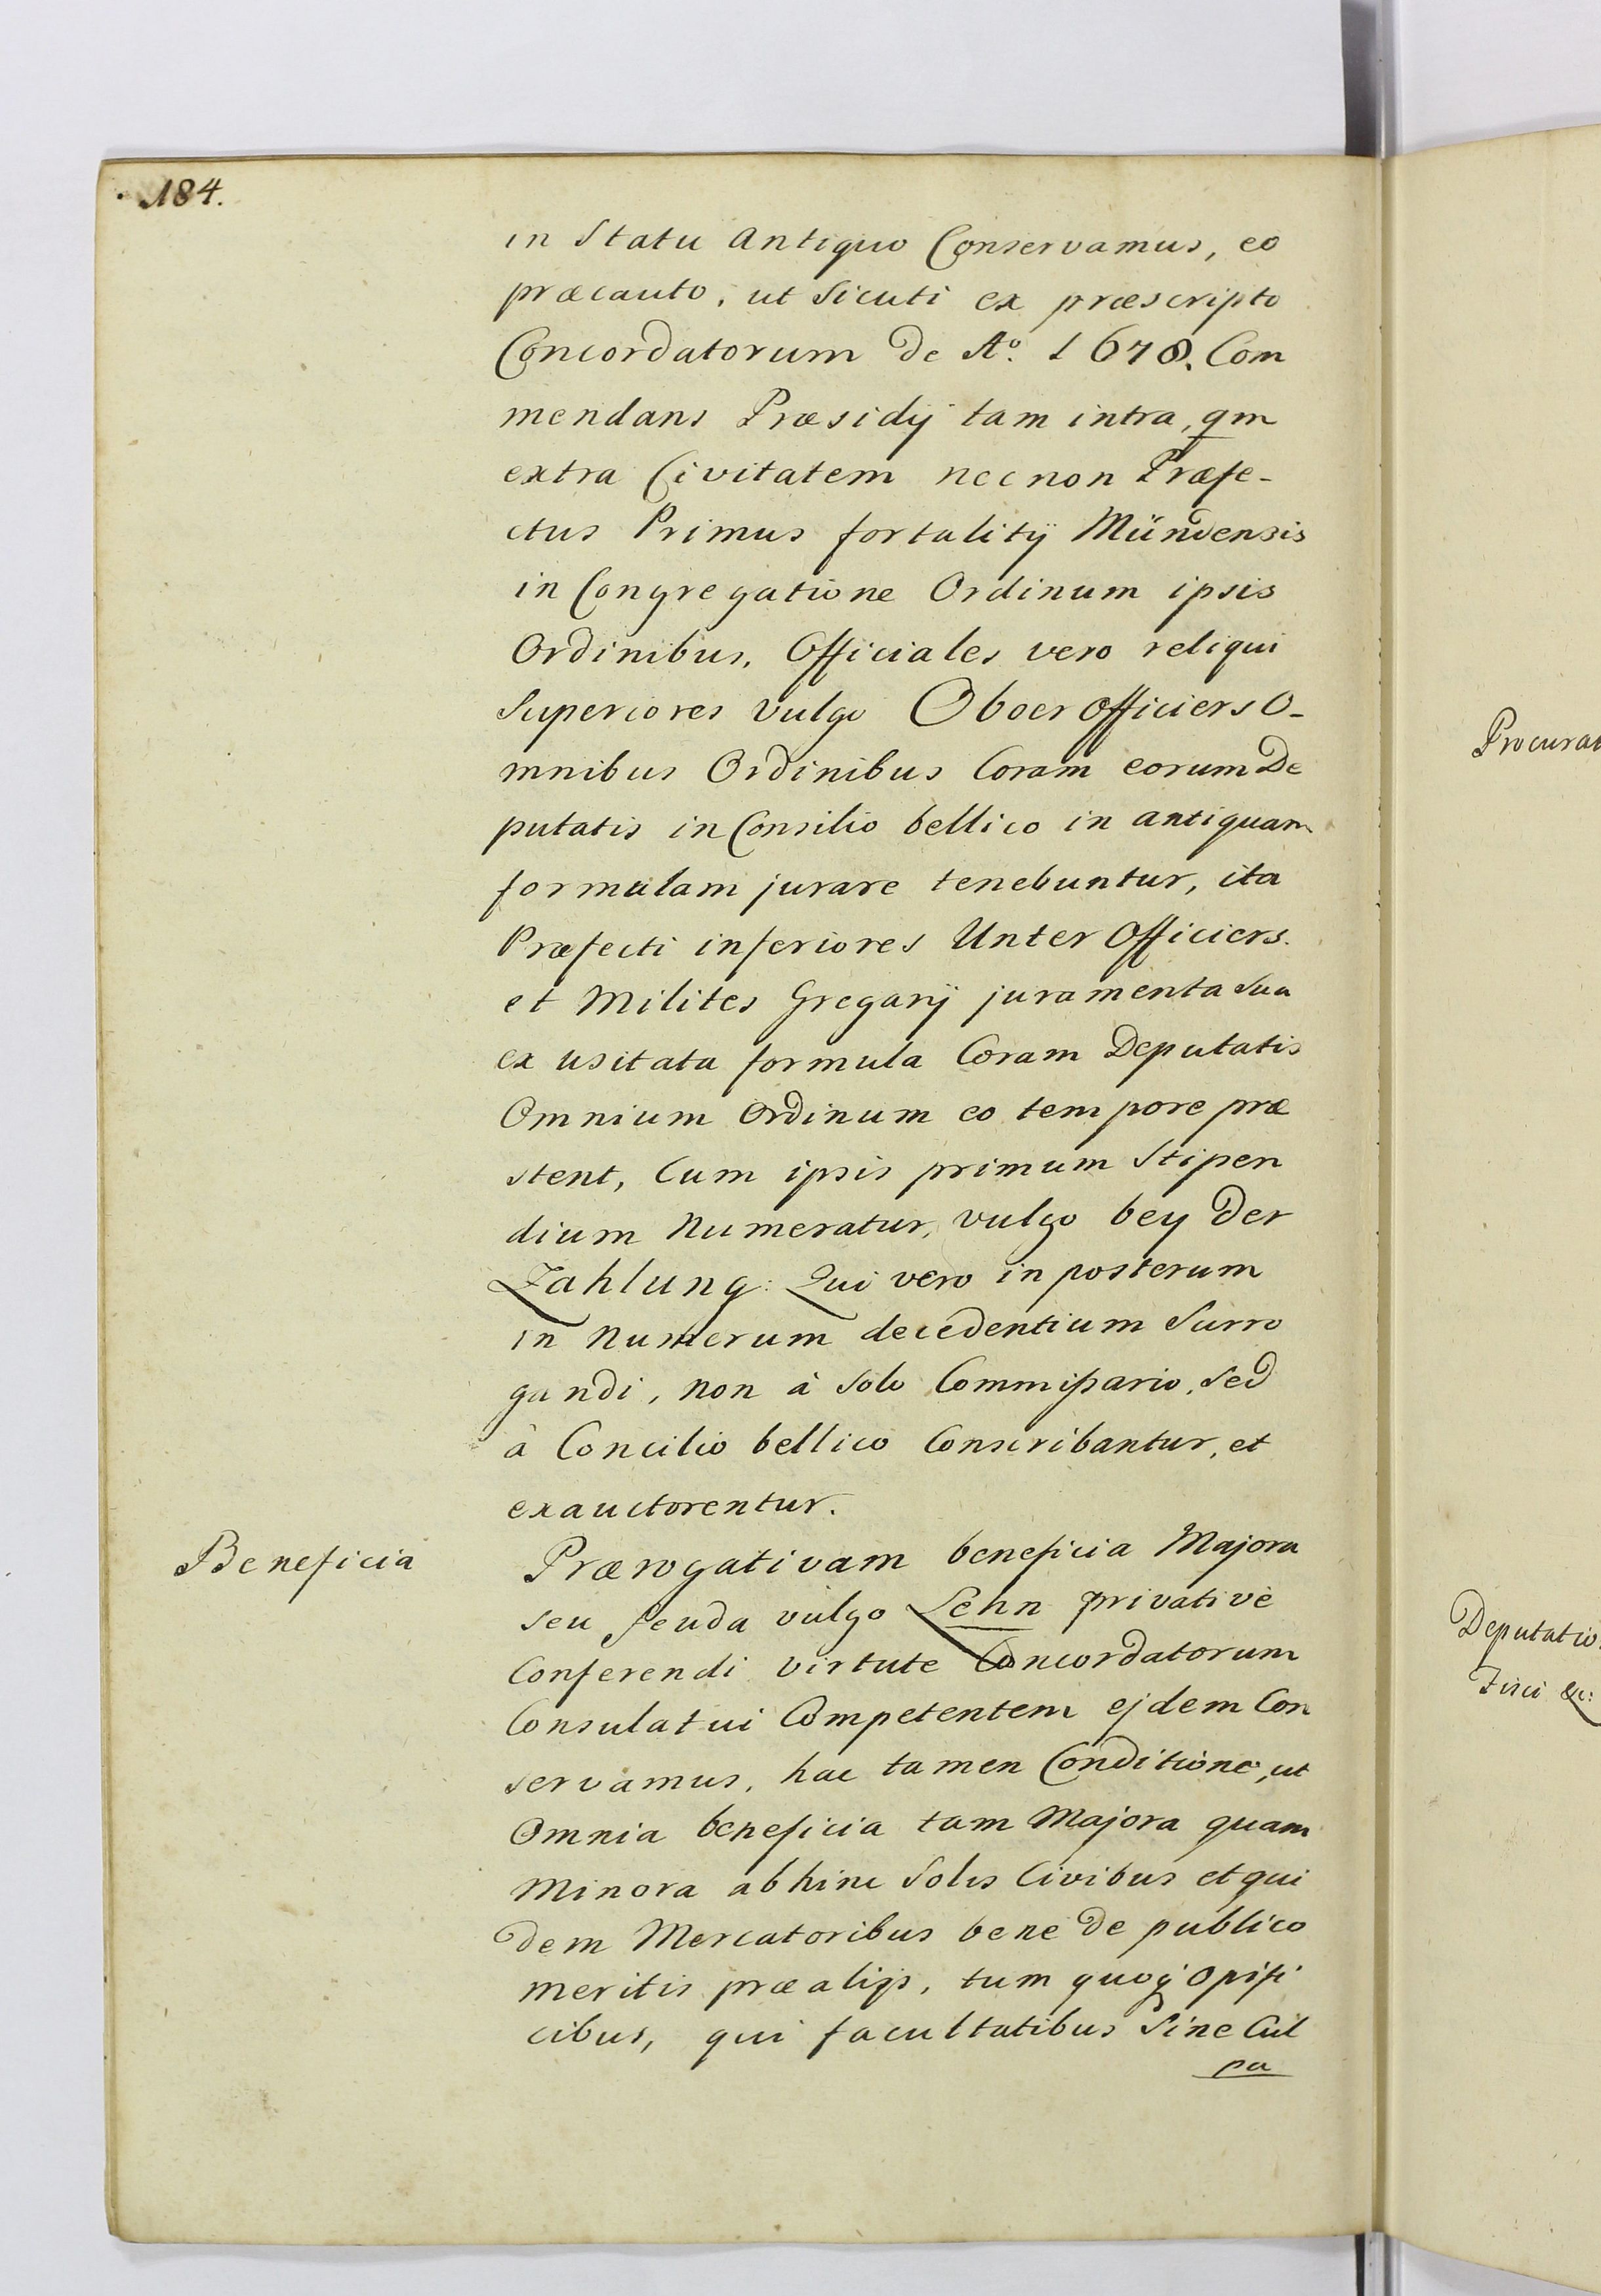 184.
in Statu Antiquo Conservamus, eo
præcauto, ut Sicuti ex præscripto
Concordatorum de Aº. 1678. Com
mendans Præsidij tam intra, qm
extra Civitatem necnon Præfe-
ctus Primus fortalitij Mündensis
in Congregatione Ordinum ipsis
Ordinibus, Officiales vero reliqui
Superiores vulgo Oboer Officiers O-
mnibus Ordinibus Coram eorum De
putatis in Consilio bellico in antiquam
formulam jurare tenebuntur, ita
Præfecti inferiores Unter Officiers.
et Milites Gregarij juramenta sua
ex usitata formula Coram Deputatis
Omnium Ordinum eo tempore præ
stent, Cum ipsis primum Stipen
dium Numeratur, vulgo bey der
Zahlung: Qui vero in posterum
in Numerum decedentium Surro
gandi, non à solo Commißario, sed
à Concilio bellico Conscribantur, et
exauctorentur.
Beneficia
Prærogativam beneficia Majora
seu feuda vulgo Lehn privativè
Conferendi virtute Concordatorum
Consulatui Competentem ejdem Con
servamus, hac tamen Conditione, ut
Omnia beneficia tam Majora quam
Minora abhinc Solis Civibus et qui
dem Mercatoribus bene de publico
meritis præ alijs, tum quoq opifi
cibus, qui facultatibus Sine Cul
pa
Procurat
Deputatio
Fisci &c: